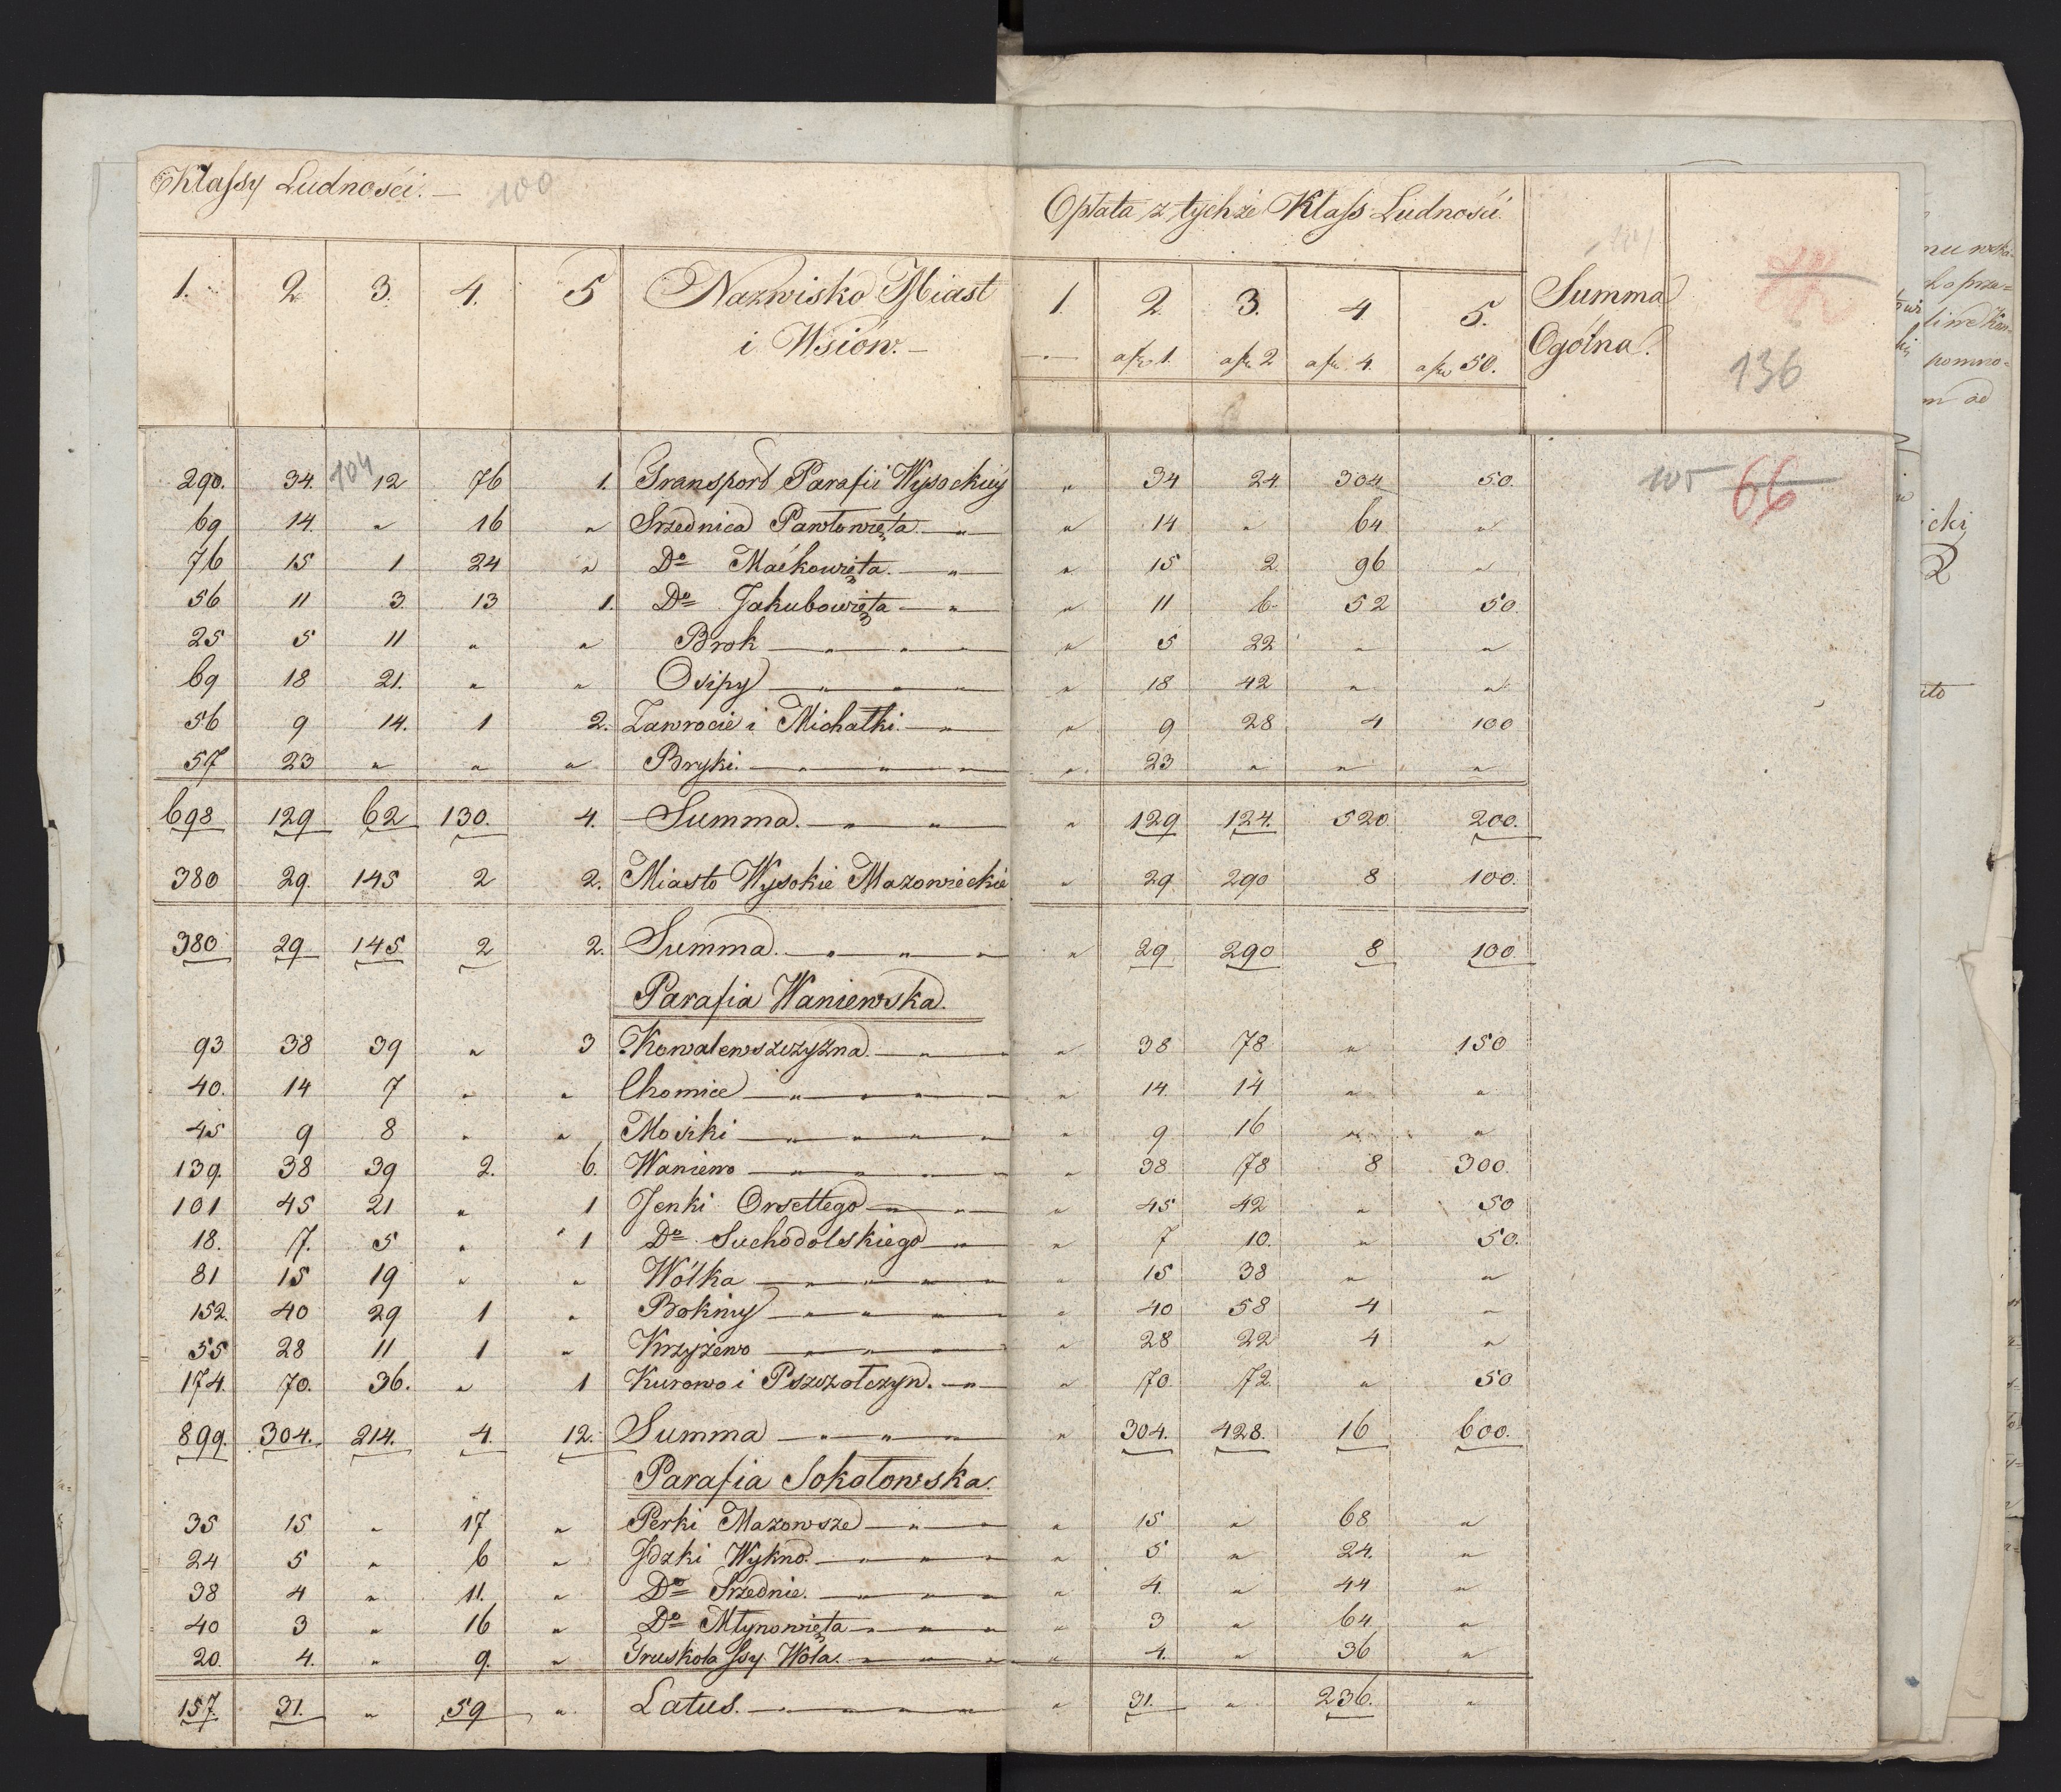 Klassy Ludności. — 100 Opłata z tychże Klass Ludności
1. 2 3. 4. 5 Nazwisko Miast i Wsiów. — 1. 2. 3. 4 5. Summa Ogólna.
a fl. 1. a fl. 2 a fl. 4. a fl. 50.
136
290. 34. 104 12 76 1. Transport Parafii Wysockiey " 34 24 304 50. 105 66
69 14. " 16 " Srzednica Pawłowięta. — " — " 14 " 64 "
76 15 1 24 " Do Maćkowięta. — " — " 15 2 96 "
56 11 3. 13 1. Do Jakubowięta — " — " 11 6 52 50.
25 5 11 " " Brok — " — " — " — " 5 22 " "
69 18 21. " " Osipy — " — " — " — " 18 42 " "
56 9 14. 1 2. Zawrocie i Michałki. — " — " 9 28 4 100
57 23 " " " Bryki. — " — " — " — " 23 " " "
698 129 62 130. 4. Summa. — " — " — " 129 124. 520 200.
380 29. 145 2 2. Miasto Wysokie Mazowieckie " 29 290 8 100.
380 29 145 2 2. Summa. — " — " — " — " 29 290 8 100
Parafia Waniewska.
93 38 39 " 3 Kowalewszczyzna. — " — " " 38 78 " 150
40. 14 7 " " Chomice — " — " — " — " " 14. 14 " "
45 9 8 " " Moszki — " — " — " — " " 9 16 " "
139. 38 39 2. 6. Waniewo — " — " — " — " " 38 78 8 300.
101 45 21 " 1 Jenki Orsettego — " — " — " 45 42 " 50
18. 7. 5 " 1 Do Suchodolskiego — " — " 7 10. " 50.
81 15 19 " " Wólka — " — " — " — " " 15 38 " "
152. 40 29 1 " Bokiny — " — " — " — " " 40 58 4 "
55 28 11 1 " Krzyżewo — " — " — " — " 28 22 4 "
174. 70. 36. " 1 Kurowo i Pszczółczyn. — " — " 70 72 " 50
899. 304. 214. 4. 12. Summa — " — " — " — " 304. 428. 16 600.
Parafia Sokołowska.
35 15 " 17 " Perki Mazowsze — " — " — " 15 " 68 "
24 5 " 6 " Jdzki Wykno. — " — " — " — " 5 " 24. "
38 4 " 11. " Do Srzednie. — " — " — " — " 4. " 44 "
40 3 " 16 " Do Młynowięta — " — " — " " 3 " 64 "
20. 4. " 9. " Truskolassy Wola. — " — " — " " 4. " 36 "
157. 31. " 59 " Latus. — " — " — " — " 31. " 236. "